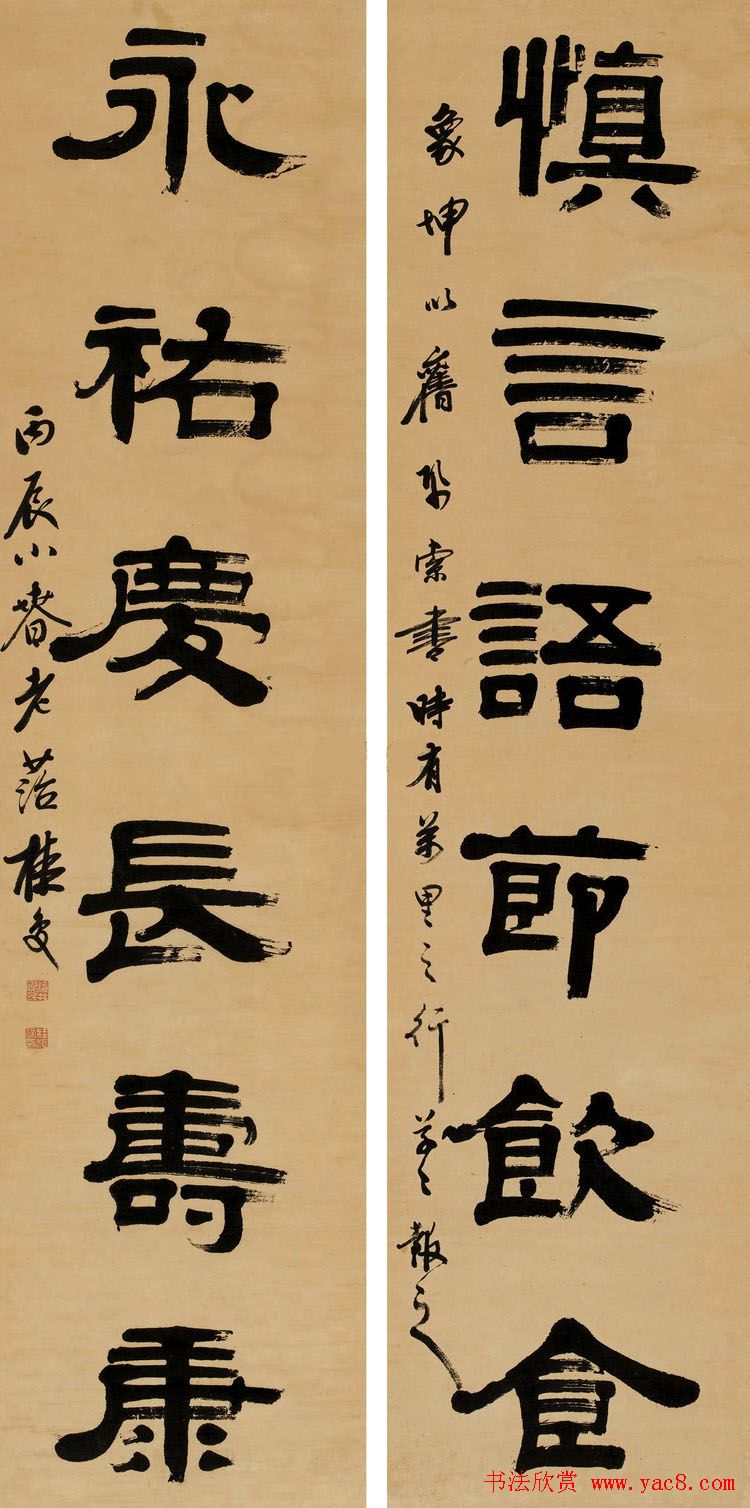 慎言語節飲食
象坤以舊紙索書時有萬里之行草草報之
永祐慶長壽康
丙辰小春老菭桂馥
书法欣赏 www.yac8.com